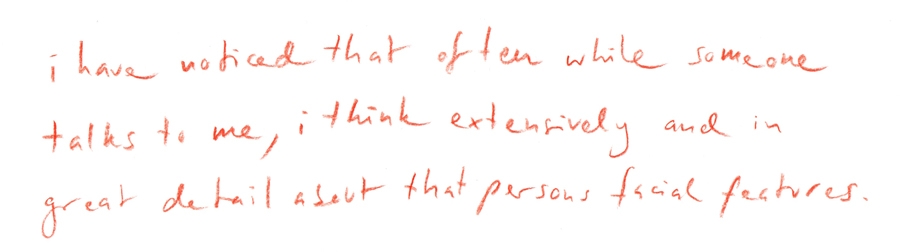 i have noticed that often while someone
talks to me, i think extensively and in
great detail about that persons facial features.